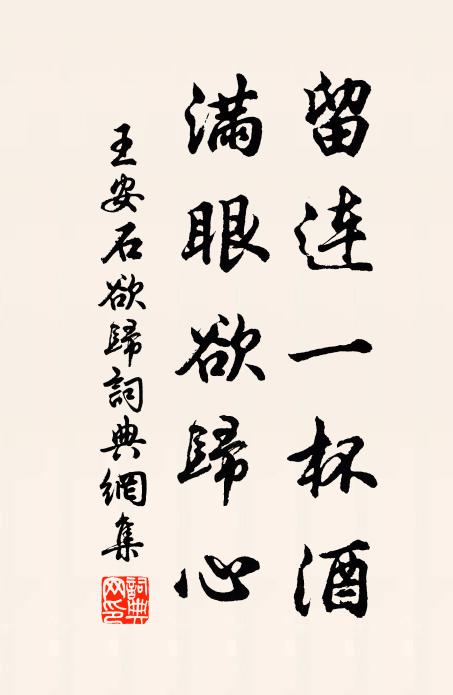 留連一杯酒
滿眼欲歸心
王安石欲歸詞典網集
詞典網印